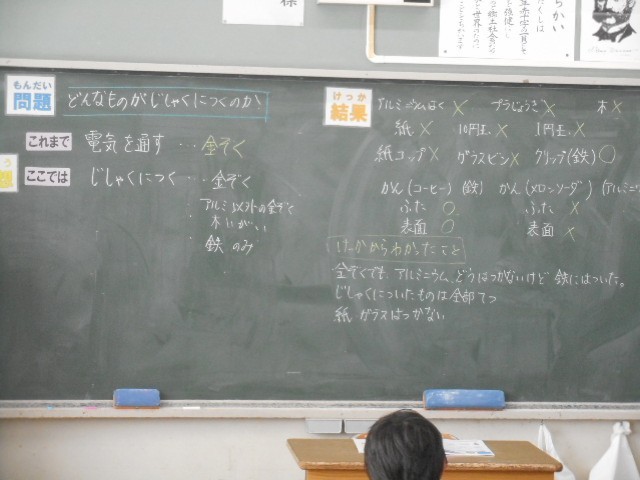 もんだい
問題
どんなものがじしゃくにつくのか
これまで
電気を通す…金ぞく
ここでは
じしゃくにつく…金ぞく
アルミ以外の金ぞく
木いがい
鉄のみ
けっか
結果
アルミニウムはく× プラじょうぎ× 木×
紙× 10円玉× 1円玉×
紙コップ× ガラスビン× クリップ(鉄)○
かん(コーヒー)(鉄) かん(メロンソーダ)(アルミ
ふた○ ふた×
表面○ 表面×
けっかからわかったこと
金ぞくでも、アルミニウム、どうはつかないけど鉄にはついた。
じしゃくについたものは全部てつ
紙 ガラスはつかない
様